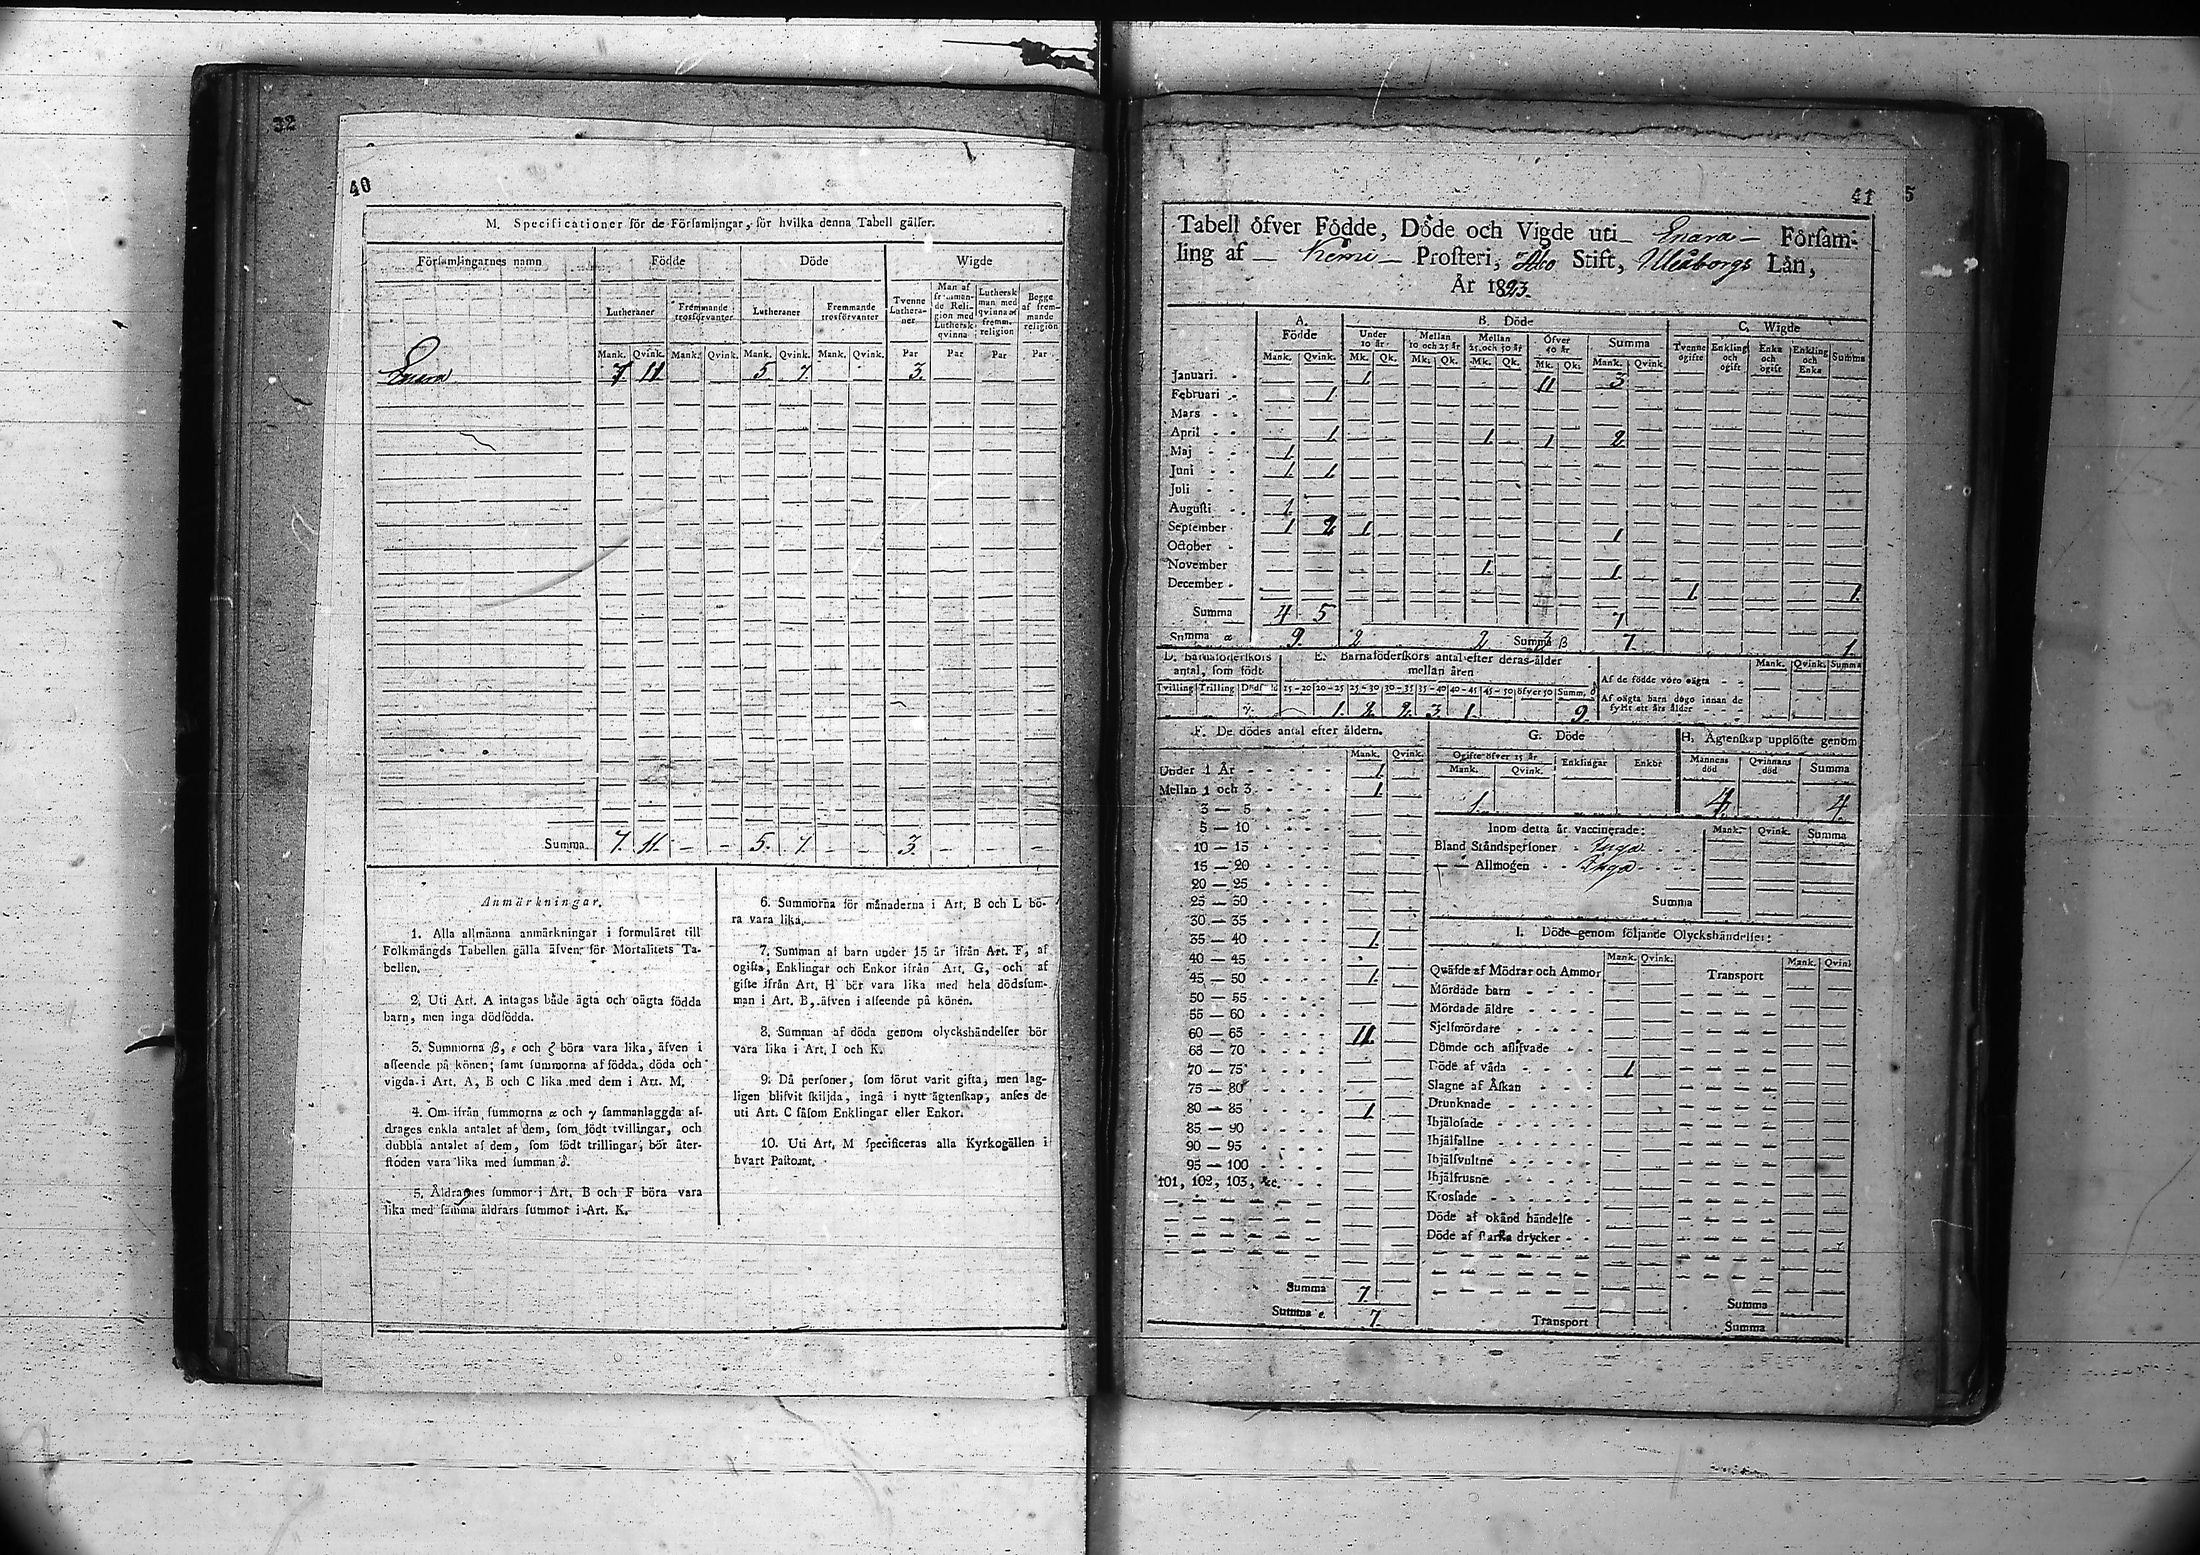 32
40
M. Specificationer för de Församlingar, för hvilka denna Tabell gäller.
Församlingarnes namn
Födde
Döde
Wigde
Lutheraner
Fremmande trosförvanter
Lutheraner
Fremmande trosförvanter
Tvenne Lutheraner
Man af fremmande Religion med Luthersk qvinna
Luthersk man med qvinna af fremm. religion
Begge af fremmande religion
Mank. Qvink. Mank. Qvink. Mank. Qvink. Mank. Qvink. Par Par Par Par
Enara 7 11 5. 7. 3.
Summa 7. 11. - - 5. 7. - - 3. - - -
Anmärkningar.
1. Alla allmänna anmärkningar i formuläret till
Folkmängds Tabellen gälla äfven för Mortalitets Ta-
bellen.
2. Uti Art. A intagas både ägta och oägta födda
barn, men inga dödfödda.
3. Summorna ß, ε och ζ böra vara lika, äfven i
afseende på könen; samt summorna af födda, döda och
vigda i Art. A, B och C lika med dem i Art. M.
4. Om ifrån summorna α och γ sammanlaggda af-
drages enkla antalet af dem, som födt tvillingar, och
dubbla antalet af dem, som födt trillingar, bör åter-
stoden vara lika med summan δ.
5. Åldrarnes summor i Art. B och F böra vara
lika med samma åldrars summor i Art. K.
6. Summorna för månaderna i Art. B och L bö-
ra vara lika.
7. Summan af barn under 15 år ifrån Art. F, af
ogifta, Enklingar och Enkor ifrån Art. G, och af
gifte ifrån Art. H bör vara lika med hela dödsfum-
man i Art. B, äfven i afseende på könen.
8. Summan af döda genom olyckshändelser bör
vara lika i Art. I och K.
9. Då personer, som förut varit gifta, men lag-
ligen blifvit skiljda, ingå i nytt ägtenskap, anses de
uti Art. C såsom Enklingar eller Enkor.
10. Uti Art. M specificeras alla Kyrkogällen i
hvart Pastorat.
41 5
Tabell öfver Födde, Döde och Vigde uti Enara Församl-
ling af Kemi Prosteri, Åbo Stift, Uleåborgs Län,
År 1823.
A. Födde
B. Döde
C. Wigde
Under 10 år
Mellan 10 och 25 år
Mellan 25 och 50 år
Öfver 50 år
Summa
Tvenne ogifte
Enkling och ogift
Enka och ogift
Enkling och Enka
Summa
Mank. Qvink. Mk. Qk. Mk. Qk. Mk. Qk. Mk. Qk. Mank. Qvink.
Januari 1 11 3
Februari 1
Mars
April 1. 1. 1 2
Maj 1.
Juni 1 1
Juli
Augusti 1.
September 1 2 1 1
October
November 1. 1.
December 1. 1.
Summa 4 5 7
Summa α 9. 2 2 Summa ß 3 7. 1.
D. Barnaföderskors antal, som födt
Tvilling Trilling Dödf.
γ.
E. Barnaföderskors antal efter deras ålder
mellan åren
15-20 20-25 25-30 30-35 35-40 40-45 45-50 öfver 50 Summ. δ
1. 2. 2. 3. 1. 9.
Mank. Qvink. Summa
Af de födde voro oägta
Af oägta barn dogo innan de
fyllt ett års ålder
F. De dödes antal efter åldern.
Mank. Qvink.
Under 1 År 1.
Mellan 1 och 3 1.
3 — 5
5 — 10
10 — 15
15 — 20
20 — 25
25 — 30
30 — 35
35 — 40 1.
40 — 45
45 — 50 1.
50 — 55
55 — 60
60 — 65 11.
65 — 70
70 — 75
75 — 80
80 — 85 1.
85 — 90
90 — 95
95 — 100
101, 102, 103, &c.
Summa 7.
Summa ε. 7.
G. Döde
Ogifte öfver 15 år
Enklingar
Enkor
Mank. Qvink.
1.
H. Ägtenskap upplöste genom
Mannens död
Qvinnans död
Summa
4. 4.
Inom detta år vaccinerade: Mank. Qvink. Summa
Bland Ståndspersoner Inga
— — Allmogen Inga
Summa
I. Döde genom följande Olyckshändelser:
Mank. Qvink. Mank. Qvink
Qväfde af Mödrar och Ammor Transport
Mördade barn
Mördade äldre
Sjelfmördare
Dömde och aflifvade
Döde af våda 1
Slagne af Åskan
Drunknade
Ihjälosade
Ihjälfallne
Ihjälsvultne
Ihjälfrusne
Krossade
Döde af okänd händelse
Döde af starka drycker
Summa
Transport Summa